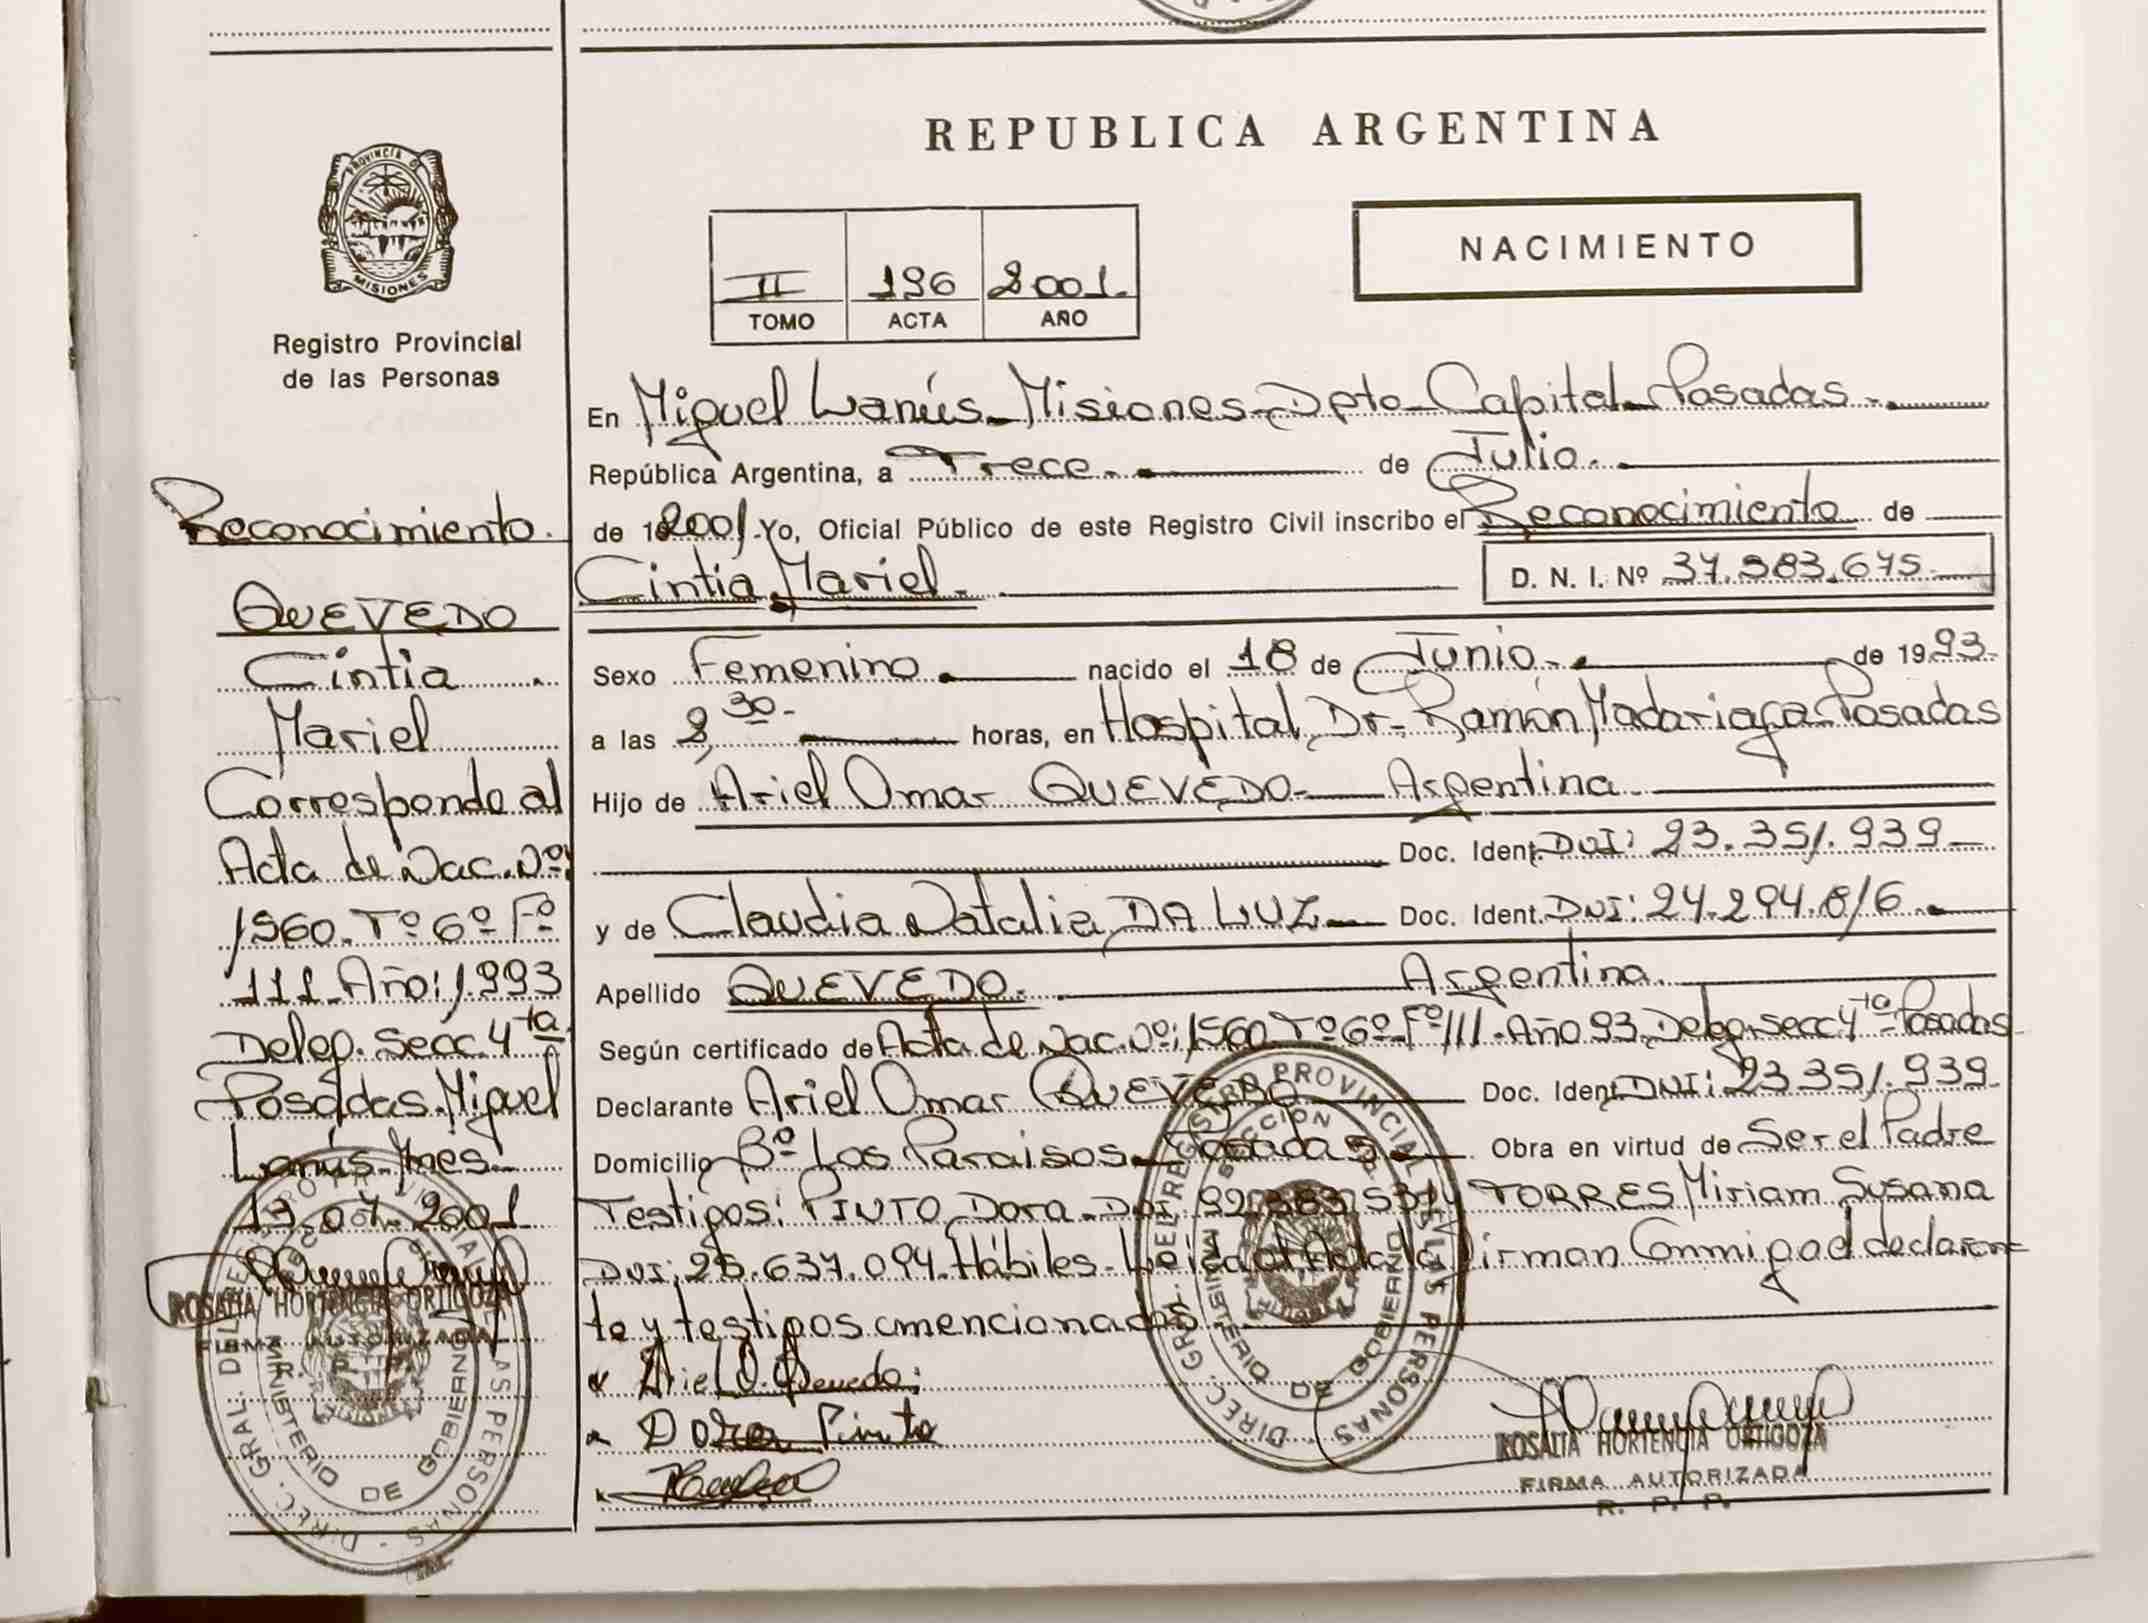 PROVINCIA DE
MISIONES
Registro Provincial
de las Personas
Reconocimiento.
QUEVEDO
Cintia
Mariel
Corresponde al
Acta de Nac. Nº:
1560. Tº 6º Fº
111 Año: 1.993
Deleg. Secc. 4ta
Posadas. Miguel
Lanús. Mes
13.07.2001
ROSALIA HORTENCIA ORTIGOZA
FIRMA AUTORIZADA
R. P. P.
REPUBLICA ARGENTINA
NACIMIENTO
II 196 2001.
TOMO ACTA AÑO
En Miguel Lanús - Misiones - Dpto - Capital - Posadas.
República Argentina, a Trece. de Julio.
de 19 2001. Yo, Oficial Público de este Registro Civil inscribo el Reconocimiento de
Cintia Mariel. D. N. I. Nº 37.583.675
Sexo Femenino nacido el 18 de Junio. de 1993.
a las 8,30 horas, en Hospital Dr. Ramón Madariaga - Posadas
Hijo de Ariel Omar QUEVEDO - Argentina
Doc. Ident. DNI: 23.351.939
y de Claudia Natalia DA LUZ Doc. Ident. DNI: 24.294.816
Apellido QUEVEDO. Argentina.
Según certificado de Acta de Nac. Nº: 1560 Tº 6º Fº 111 - Año 93. Deleg. secc 4ta Posadas
Declarante Ariel Omar QUEVEDO Doc. Ident. DNI: 23351.939
Domicilio Bº Los Paraisos - Posadas Obra en virtud de Ser el Padre
Testigos: PINTO Dora - DNI TORRES Miriam Susana
DNI: 25.637.094. Hábiles. Leida el Acta la firman Conmigo el declaran
te y testigos amencionados
Ariel O. Quevedo
Dora Pinto
ROSALIA HORTENCIA ORTIGOZA
FIRMA AUTORIZADA
R. P. P.
DIREC. GRAL. DEL REGISTRO PROVINCIAL DE LAS PERSONAS
MINISTERIO DE GOBIERNO
MISIONES